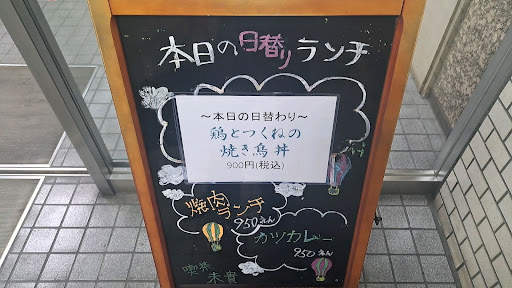 本日の日替りランチ
～本日の日替わり～
鶏とつくねの
焼き鳥丼
900円(税込)
焼肉ランチ
950えん
カツカレー
950えん
喫茶
未貴